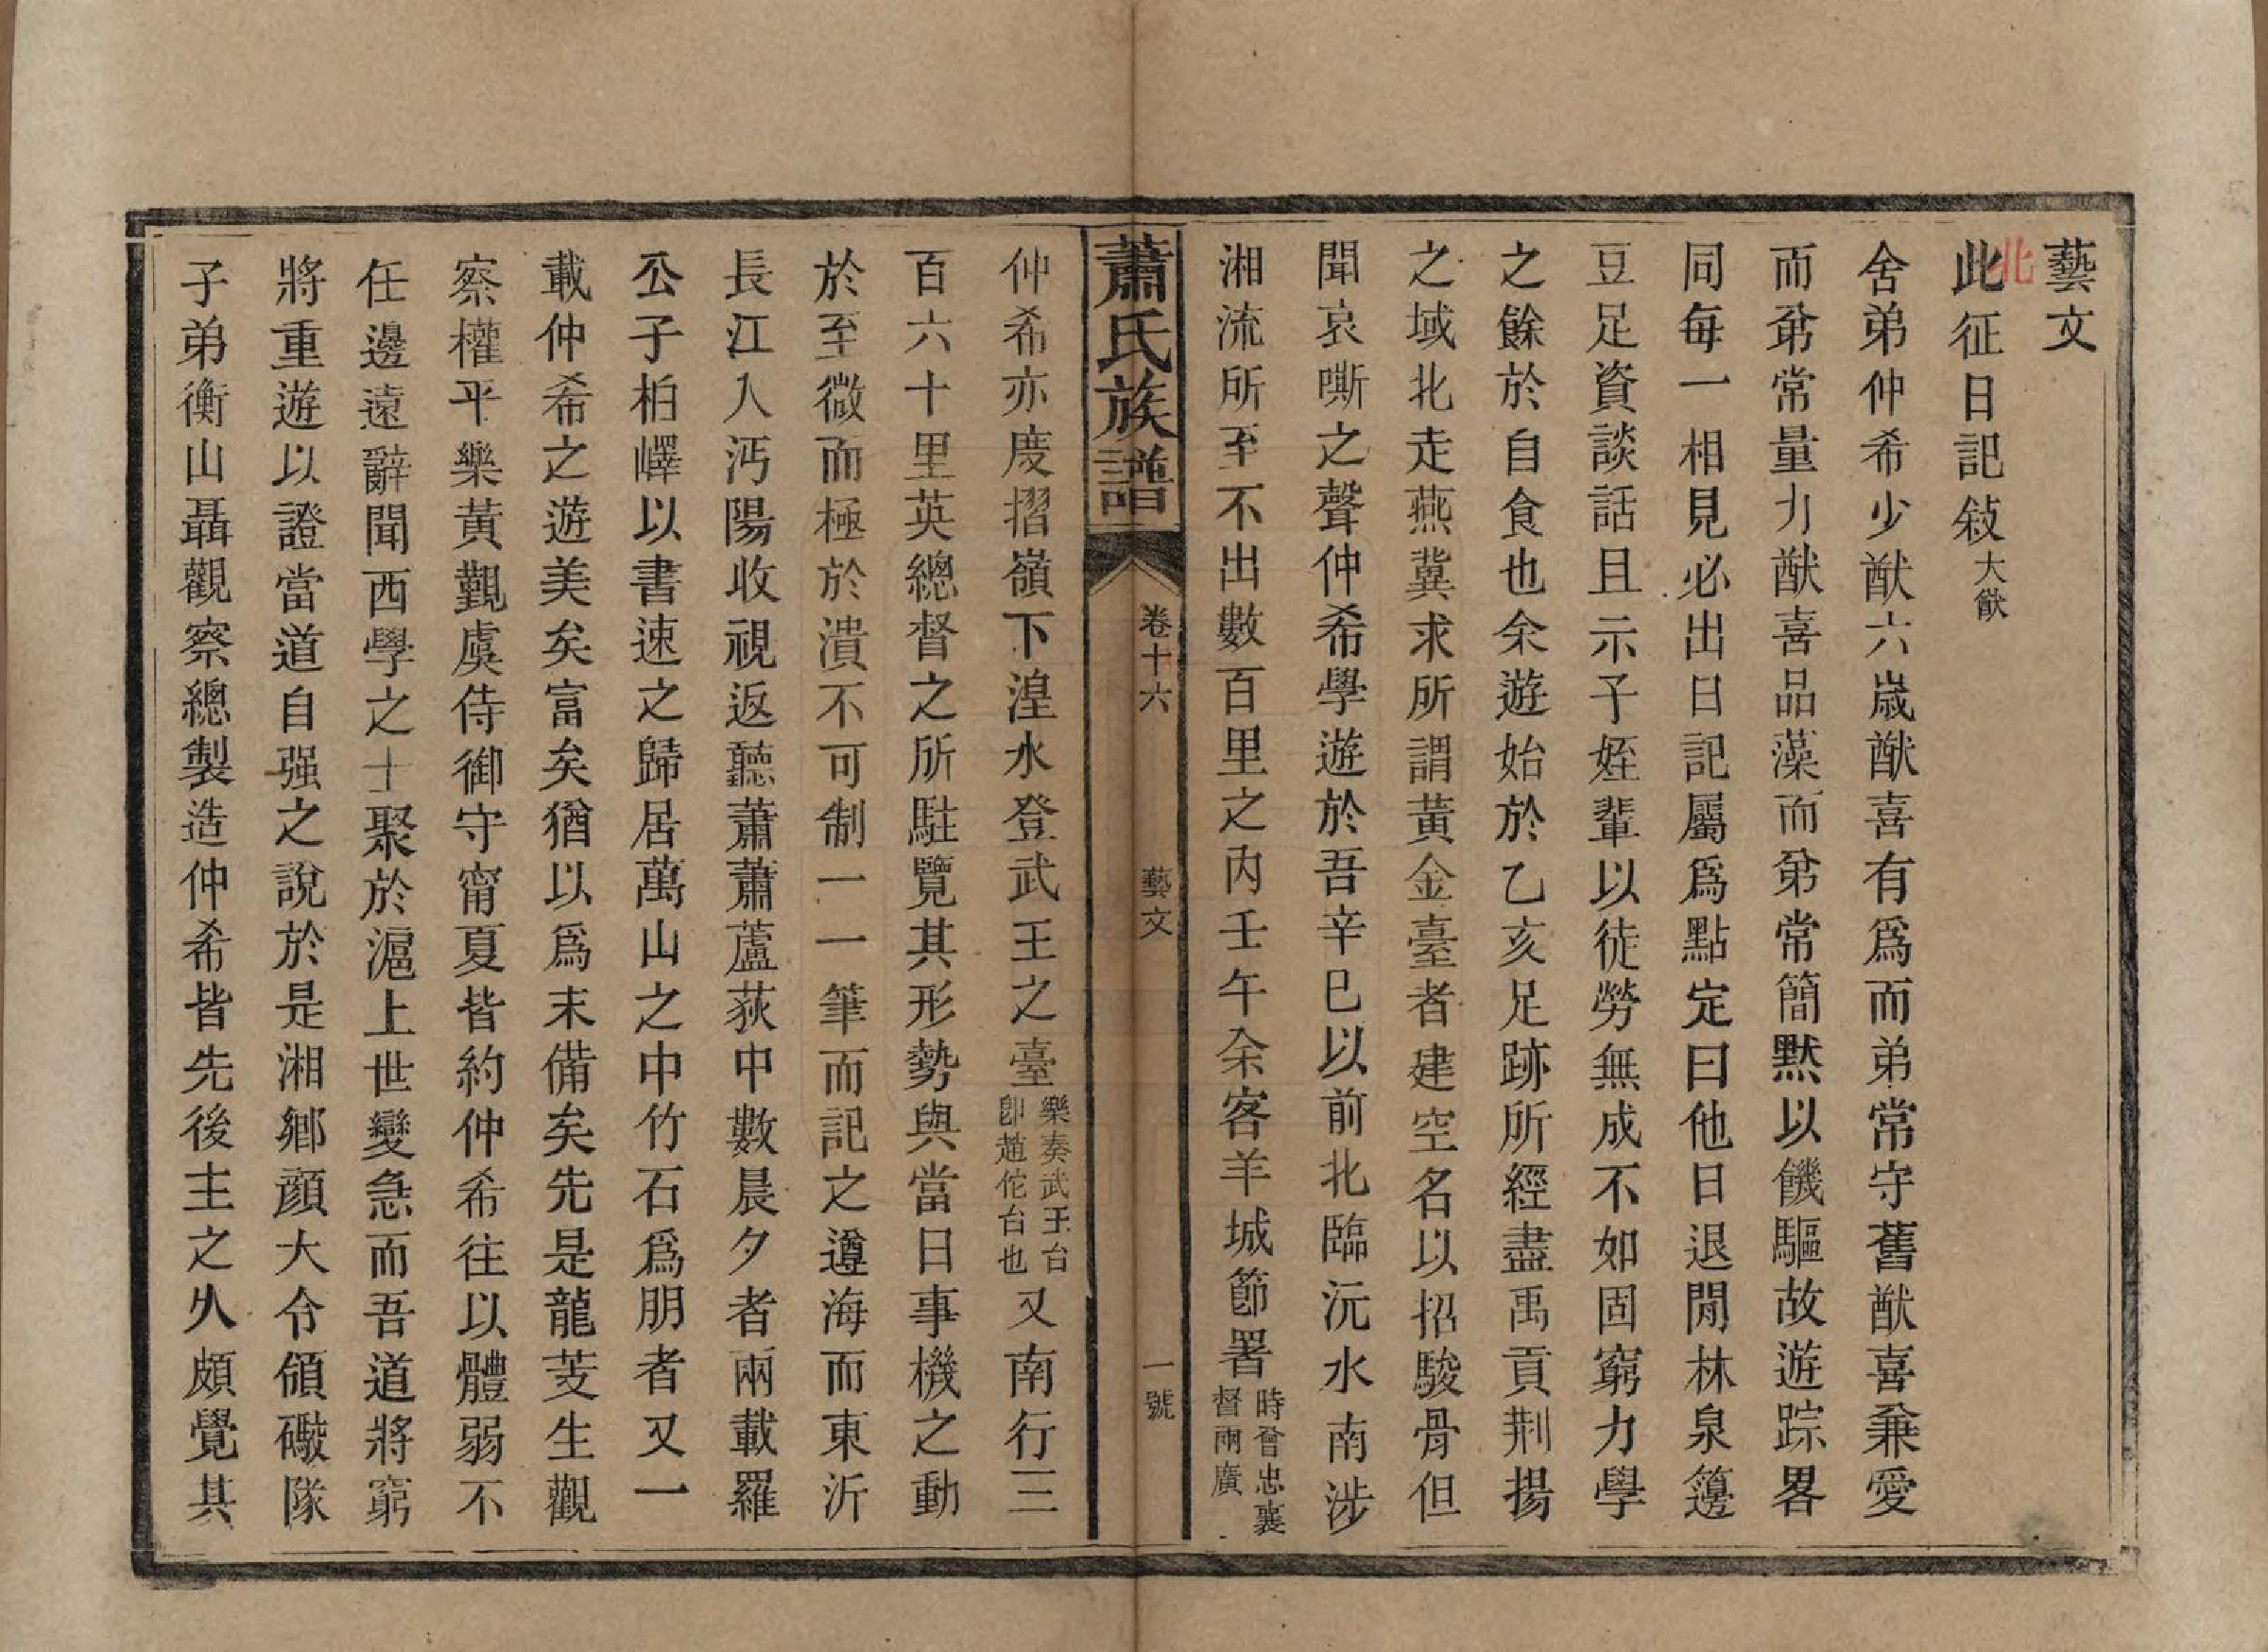 藝文
北
此征日記敍大猷
舍弟仲希少猷六歳猷喜有爲而弟常守舊猷喜兼愛
而弟常量力猷喜品藻而弟常簡默以饑驅故遊踪畧
同每一相見必出日記屬爲點定曰他日退閒林泉籩
豆足資談話且示子姪輩以徒勞無成不如固窮力學
之餘於自食也余遊始於乙亥足跡所經盡禹貢荆揚
之域北走燕冀求所謂黃金臺者建空名以招駿骨但
聞哀嘶之聲仲希學遊於吾辛巳以前北臨沅水南涉
湘流所至不出數百里之內壬午余客羊城節署時曾忠襄督兩廣
蕭氏族譜
卷十六
藝文
一號
仲希亦度摺嶺下湟水登武王之臺樂奏武王台卽趙佗台也又南行三
百六十里英總督之所駐覽其形勢與當日事機之動
於至微而極於潰不可制一一筆而記之遵海而東沂
長江入沔陽收視返聽蕭蕭蘆荻中數晨夕者兩載羅
公子柏嶧以書速之歸居萬山之中竹石爲朋者又一
載仲希之遊美矣富矣猶以爲未備矣先是龍芝生觀
察權平樂黃覲虞侍御守甯夏皆約仲希往以體弱不
任邊遠辭聞西學之士聚於滬上世變急而吾道將窮
將重遊以證當道自强之說於是湘鄉顔大令領礮隊
子弟衡山聶觀察總製造仲希皆先後主之久頗覺其